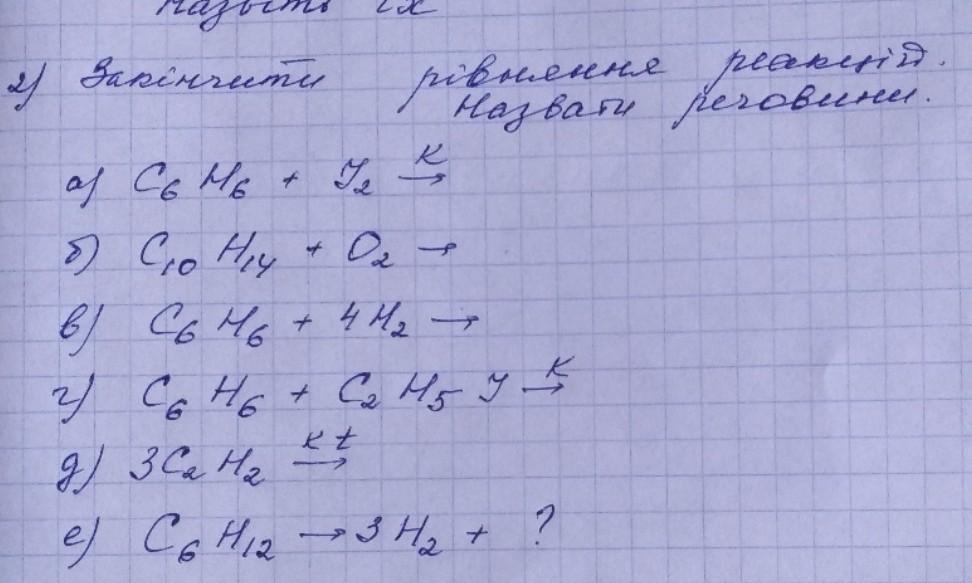 Назвіть їх
2) Закінчити рівняння реакцій.
Назвати речовини.
а) C₆H₆ + J₂ →ᴷ
б) C₁₀H₁₄ + O₂ →
в) C₆H₆ + 4H₂ →
г) C₆H₆ + C₂H₅J →ᴷ
д) 3C₂H₂ →ᴷ ᵗ
е) C₆H₁₂ → 3H₂ + ?